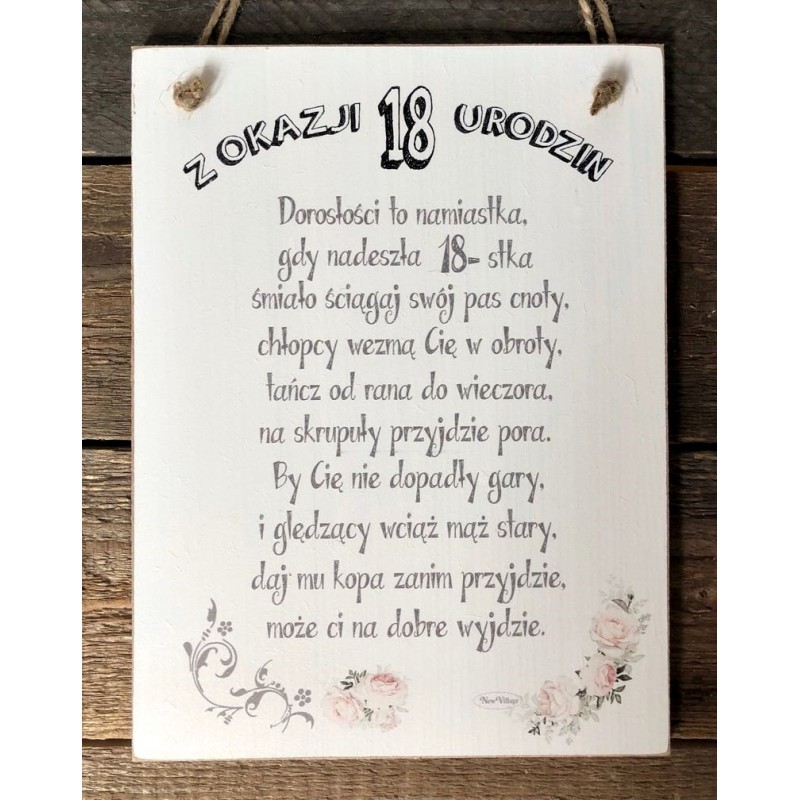 Z OKAZJI 18 URODZIN
Dorosłości to namiastka,
gdy nadeszła 18- stka
śmiało ściągaj swój pas cnoty,
chłopcy wezmą Cię w obroty,
tańcz od rana do wieczora,
na skrupuły przyjdzie pora.
By Cię nie dopadły gary,
i ględzący wciąż mąż stary,
daj mu kopa zanim przyjdzie,
może ci na dobre wyjdzie.
New Village